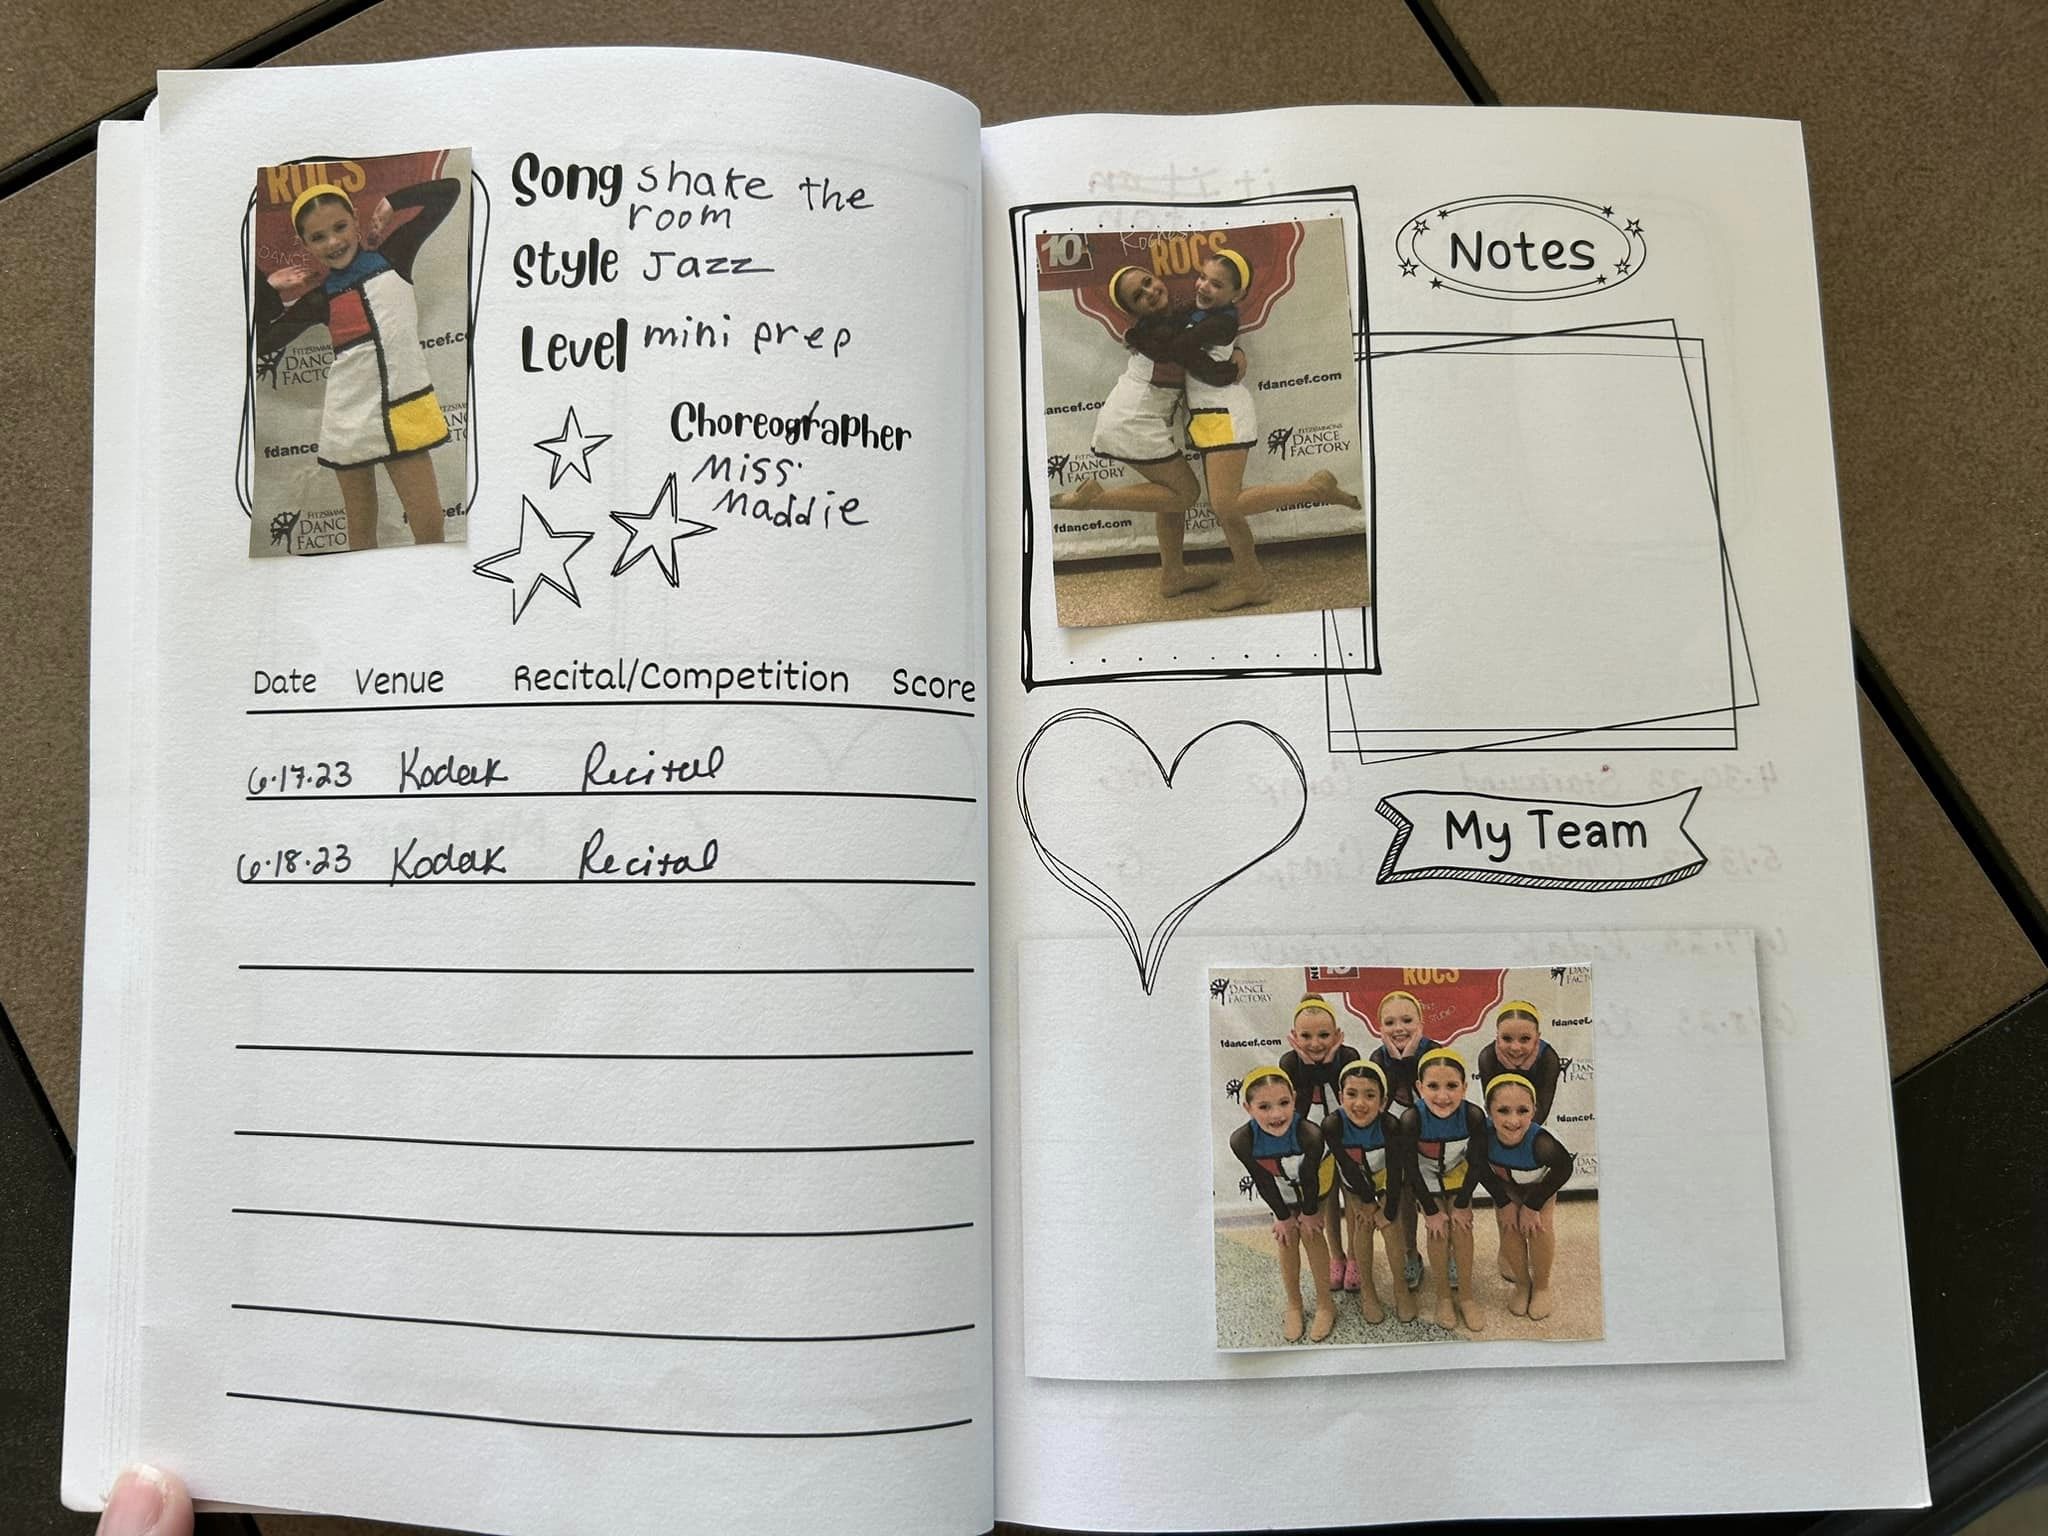 Song shake the
room
Style Jazz
Level mini prep
Choreographer
Miss
Maddie
Date Venue Recital/Competition Score
6.17.23 Kodak Recital
6.18.23 Kodak Recital
ROCS
DANCE
FITZSIMMONS
DANC
FACTO
ncef.c
fdance
FITZSIMM
DANC
FACTO
Notes
10
ROCS
fdancef.com
ancef.co
FITZSIMMONS
DANCE
FACTORY
DANCE
FACTORY
fdancef.com
DANC
FACT
My Team
ROCS
FITZSIMMONS
DANCE
FACTORY
STUDIO
fdancef.com
fdancef.
DAN
FACT
fdancef.